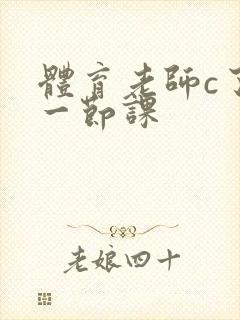 體育老師c了
一節課
老娘四十